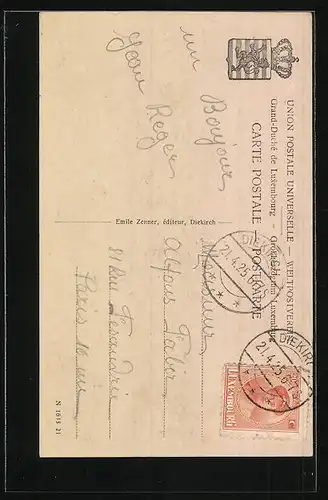 UNION POSTALE UNIVERSELLE — WELTPOSTVEREIN
Grand-Duché de Luxembourg – Großherzogtum Luxemburg
CARTE POSTALE — POSTKARTE
un Bonjour
Jean Reger
Emile Zenner, éditeur, Diekirch
Monsieur
Alfons Fabir
81 Rue
Paris 10 me
N 1613 21
DIEKIRCH
21.4.25 6
DIEKIRCH
21.4.25 6
LUXEMBOURG